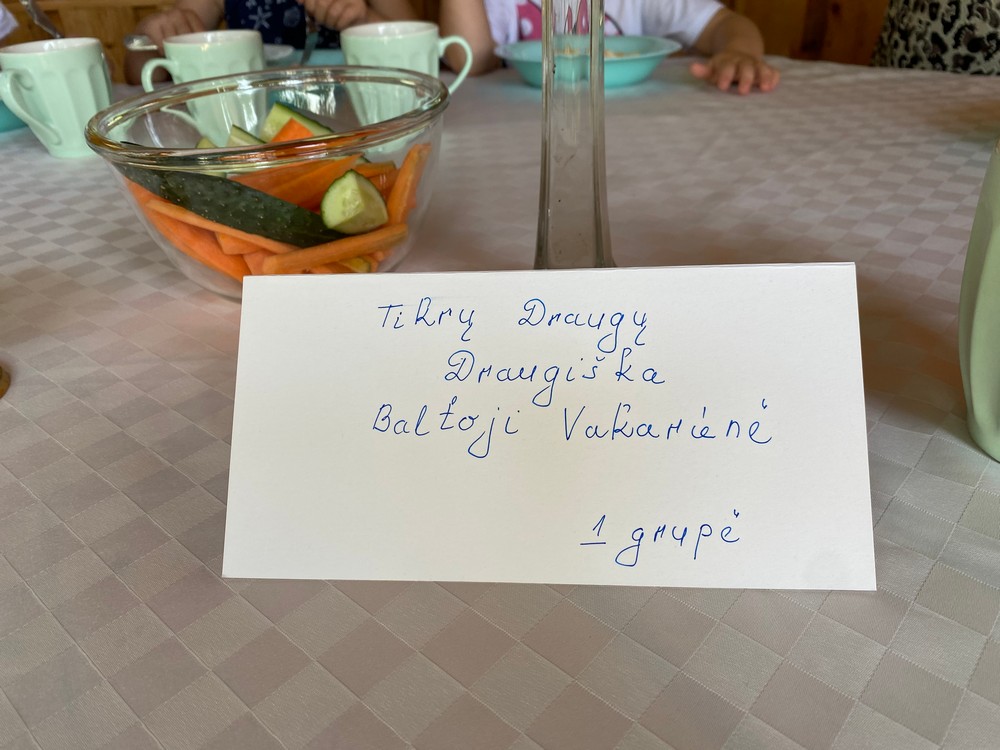 Tikrų Draugų
Draugiška
Baltoji Vakarienė
1 grupė